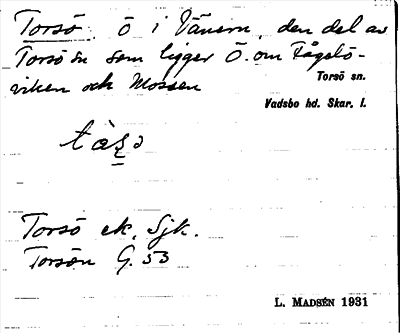 Torsö, ö i Vänern, den del av
Torsö sn som ligger Ö. om Fågelö-
viken och Mossen
Torsö sn.
Vadsbo hd. Skar. l.
Torsö ek. Sjk.
Torsön G. 53
L. MADSÉN 1931